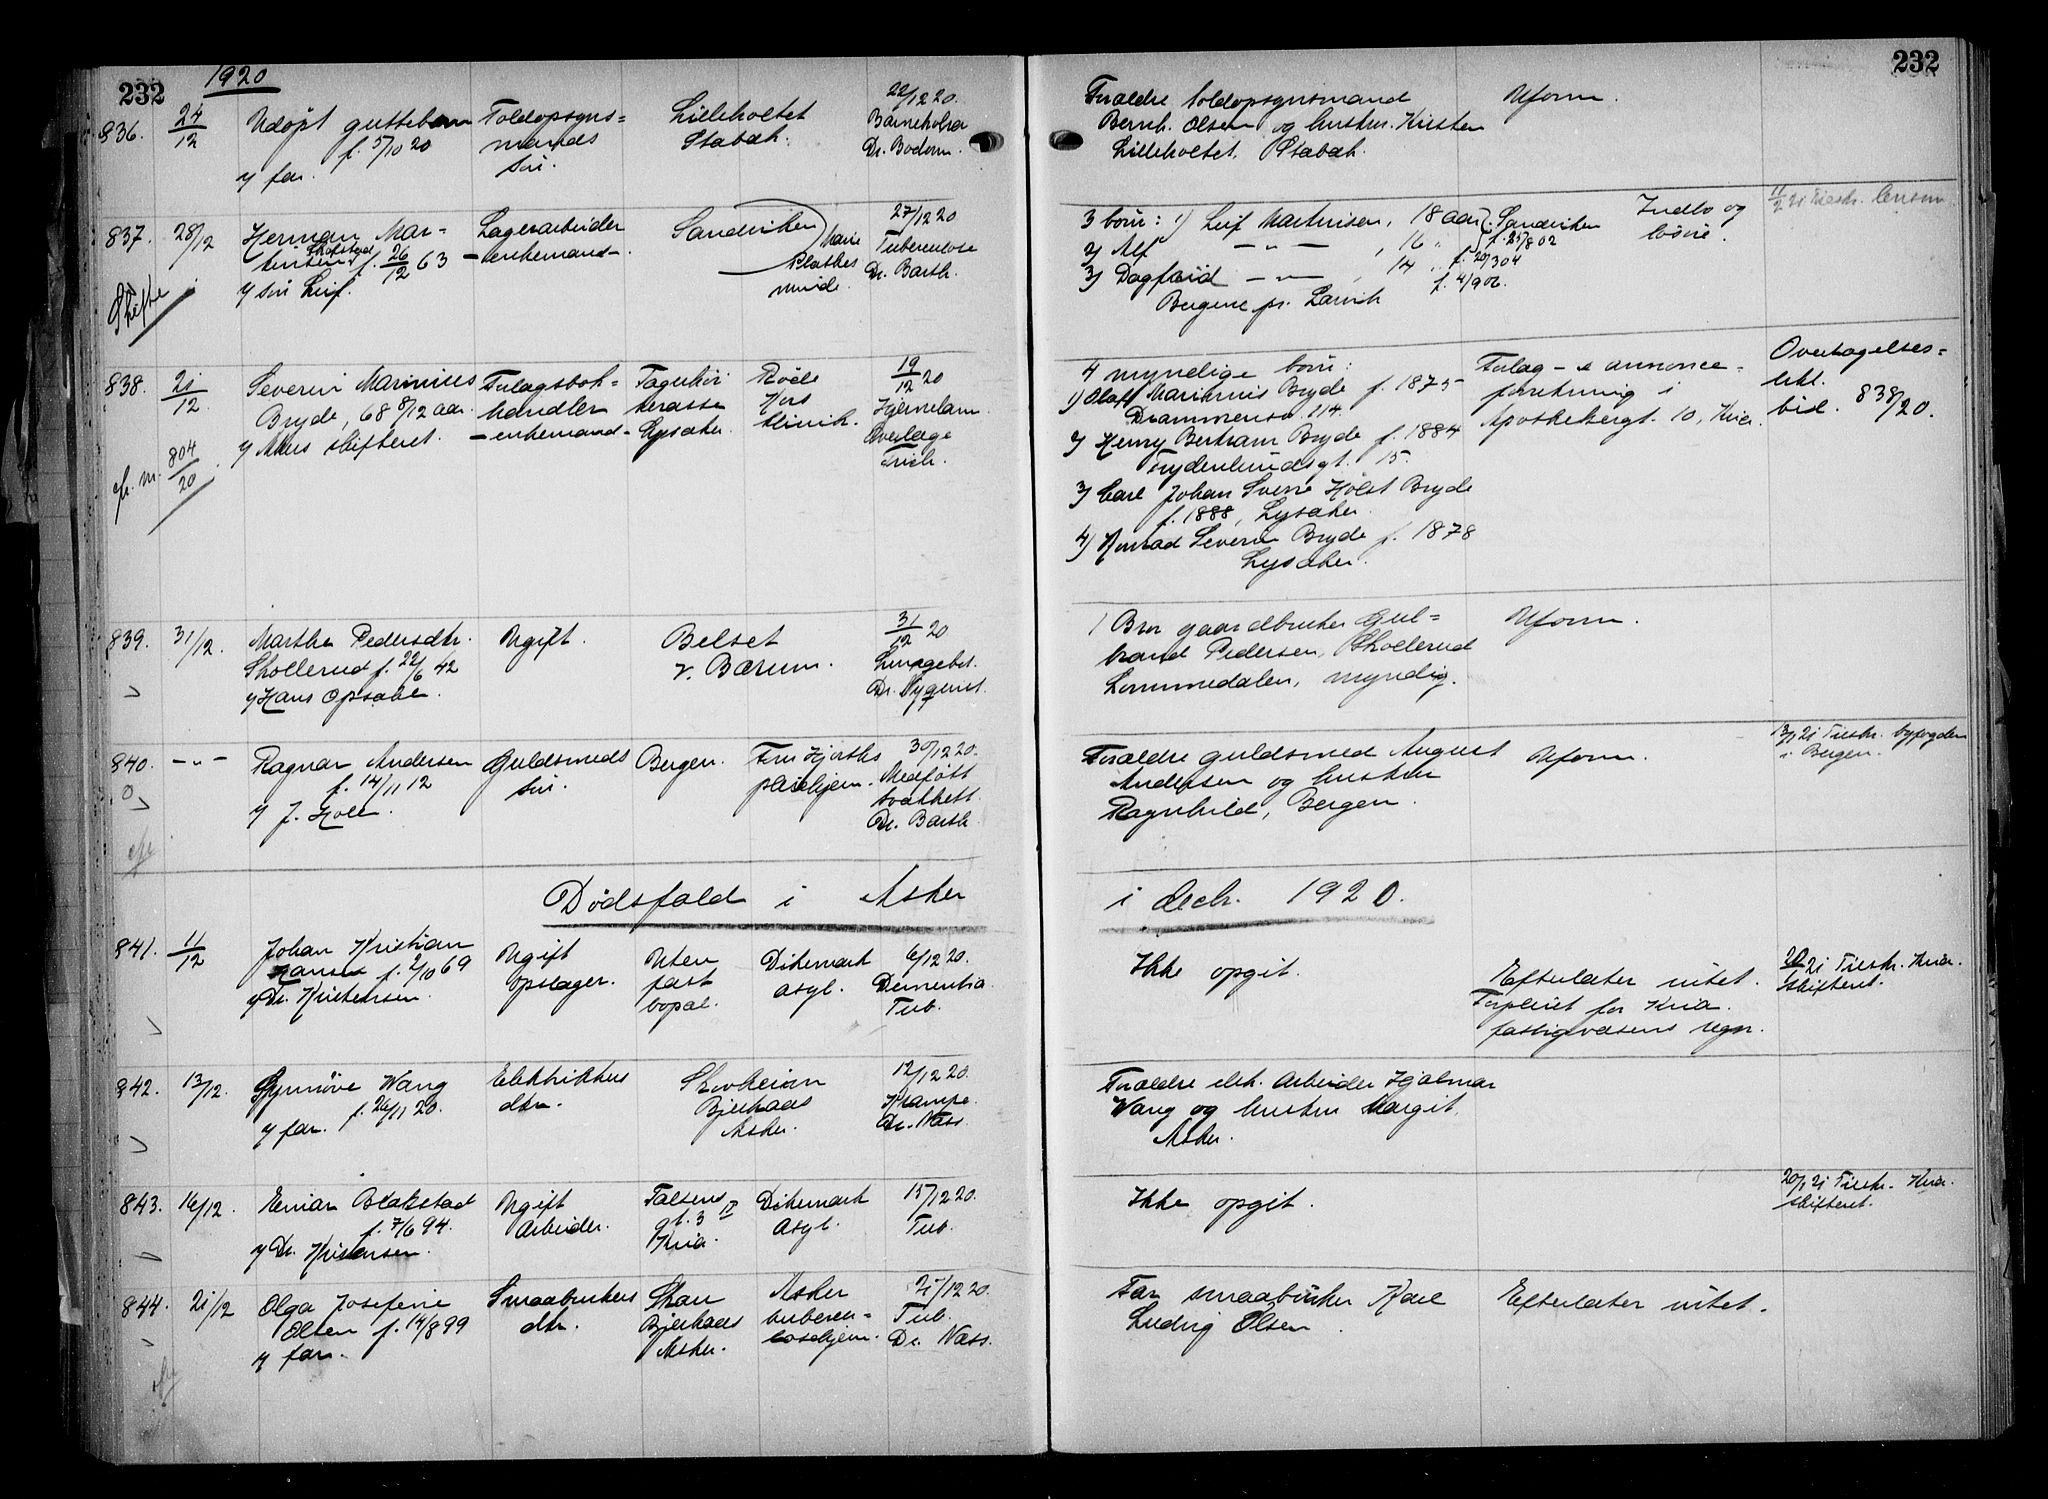 232
1920
836.
24/12
Udöpt guttebarn
f. 5/10 20
v/ far.
Toldopsyns=
mands
sön.
Lilleholtet
Stabæk.
22/12 20.
Dr. Bodom.
837.
28/12
Skifte
Herman Mar-
tinsen f. 26/12 63
v/ sön Leif.
Lagerarbeider
- enkemand -
Sandviken
Marie
Plathes
minde.
27/12 20
Tuberculose
Dr. Barth.
838.
21/12
cfr. m. 804/20
Severin Marinius
Bryde, 68 8/12 aar.
v/ Mars skifteret.
Forlagsbok=
handler
- enkemand -
terasse
Lysaker.
Röde
Kors
klinik.
19/12 20
Overlæge
839.
31/12.
Marthe Pedersdtr.
Skollerud f. 22/6 42
v/ Hans Opsahl.
Ugift.
Belset
v. Bærum.
31/12 20
Lungebet.
Dr. Nyquist.
840.
- " -
Ragnar Andersen
f. 14/11 12
v/ J. Holl.
Guldsmeds
sön.
Bergen.
Fru Hjorths
pleiehjem.
30/12 20.
Medfött
svakhett.
Dr. Barth
Dödsfald i Asker
841.
11/12
Johan Kristian
Hansen f. 2/10 69
v/ Dr. Kristensen.
Ugift
opslager.
Uten
fast
bopæl.
Dikemark
asyl.
6/12 20.
Dementia
Tub.
842.
13/12.
Synnöve Wang
f. 26/11 20.
v/ far.
Elektrikers
dtr.
Skovheim
Bjerkaas
Asker.
12/12 20.
Krampe.
Dr. Næss.
843.
16/12.
Einar Blakstad
f. 7/6 94.
v/ Dr. Kristensen.
Ugift
Arbeider.
Falsens
gt. 3 IV
Kria.
Dikemark
Asyl.
15/12 20.
Tub.
844.
21/12
Olga Josefine
Olsen f. 14/8 99
v/ far.
Smaabrukers
dtr.
Skau
Bjerkaas
Asker.
Asker
tuberku=
losehjem.
21/12 20.
Tub.
Dr. Næss.
232
Forældre toldopsynsmand
Bernh. Olsen og hustru Kirsten
Lilleholtet, Stabæk.
Uform.
3 börn: 1) Leif Martinsen, 18 aar Sandviken
f. 25/8 02
2) Alf - " - , 16 " f. 20/3 04
3) Dagfrid - " - , 14 " f. 4/9 06.
Bergene pr. Larvik
Indbo og
lösöre.
11/2 21 Tilskr. lensm.
4 myndige börn:
1) Olaf Marinius Bryde f. 1875
Drammensv. 114.
2) Henry Bertram Bryde f. 1884
Frydenlundsgt. 15.
3) Carl Johan Sverre Holst Bryde
f. 1888, Lysaker.
4) Konrad Severin Bryde f. 1878
Lysaker.
Forlag- & annonce-
forretning i
Apothekergt. 10, Kria.
Overtagelses=
erkl.
bil. 838/20.
1 Bror gaardbruker Gul=
brand Pedersen, Skollerud
Lommedalen, myndig.
Uform.
Forældre guldsmed August
Andersen og hustru
Ragnhild, Bergen.
Uform.
13/1 21 Tilskr. byfogden
i Bergen.
i decbr. 1920.
Ikke opgit.
Efterlater intet.
Forpleiet for Kria.
fattigvæsens regn.
20/1 21 Tilskr. Kria.
skifteret.
Forældre elek. arbeider Hjalmar
Wang og hustru Margit,
Asker.
Ikke opgit.
20/1 21 Tilskr. Kria.
skifteret.
Far smaabruker Karl
Ludvig Olsen.
Efterlater intet.